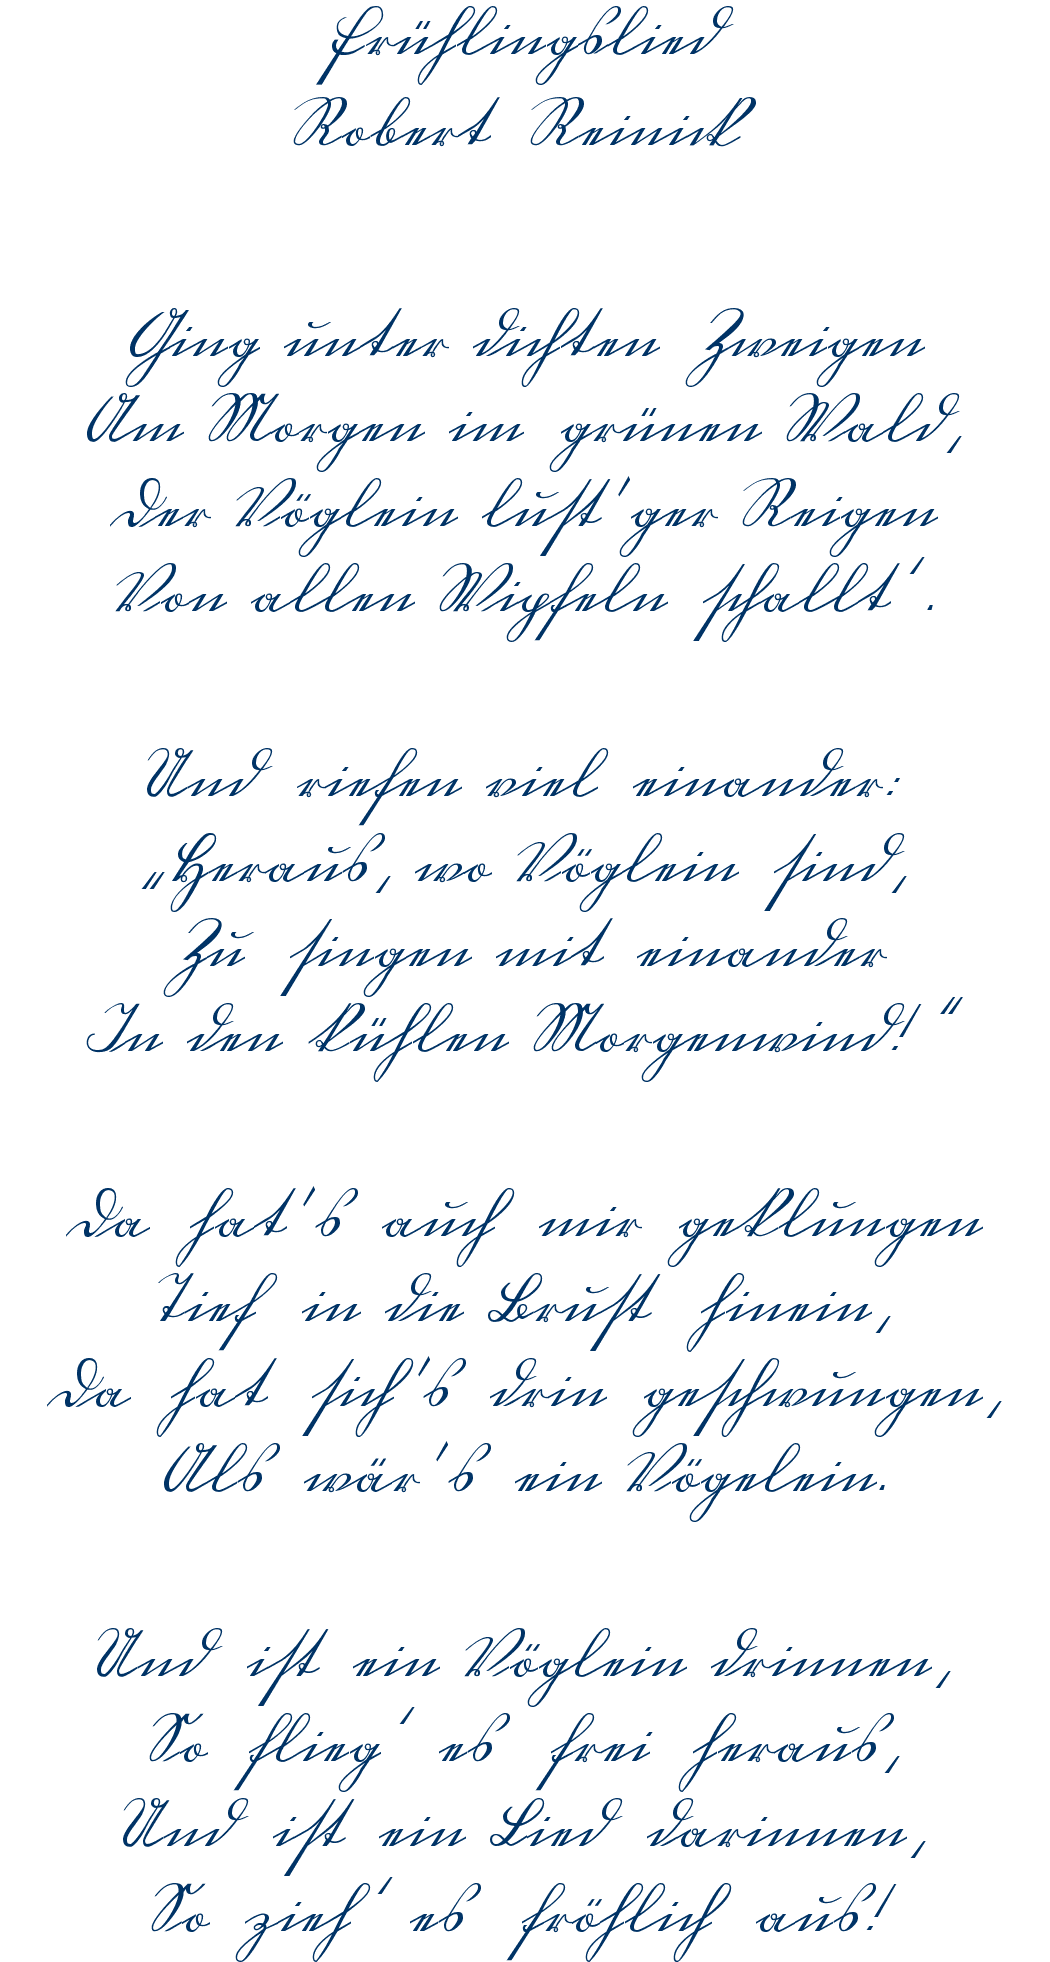 Frühlingslied
Robert Reinick
Ging unter dichten Zweigen
Am Morgen im grünen Wald,
Der Vöglein lust'ger Reigen
Von allen Wipfeln schallt'.
Und riefen viel einander:
„Heraus, wo Vöglein sind,
Zu singen mit einander
In den kühlen Morgenwind!“
Da hat's auch mir geklungen
Tief in die Brust hinein,
Da hat sich's drin geschwungen,
Als wär's ein Vögelein.
Und ist ein Vöglein drinnen,
So flieg' es frei heraus,
Und ist ein Lied darinnen,
So zieh' es fröhlich aus!